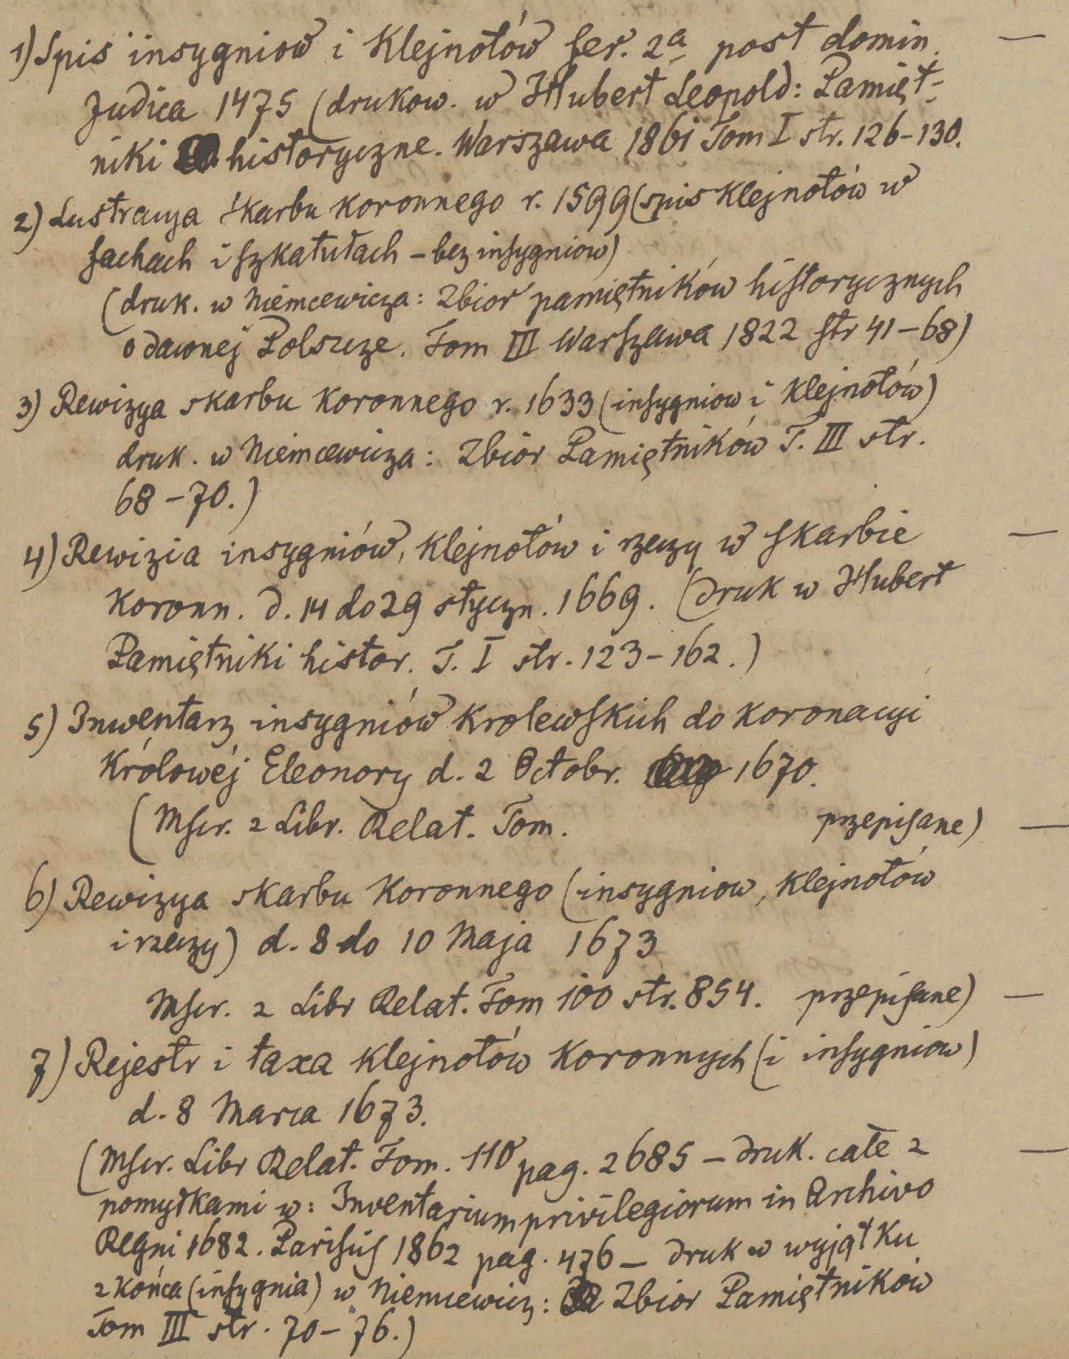 1) Spis insygniow i Klejnotów fer. 2a post domin. —
Judica 1475 (drukow. w Hubert Leopold: Pamięt-
niki historyczne. Warszawa 1861 Tom I str. 126-130.
2) Lustracya skarbu koronnego r. 1599 (spis Klejnotów w
fachach i szkatułach - bez insygniow)
(druk. w Niemcewicza: Zbior pamiętników historycznych
o dawnej Polszcze. Tom III Warszawa 1822 str 41-68)
3) Rewizya skarbu koronnego r. 1633 (insygniow i Klejnotów)
druk. w Niemcewicza: Zbiór Pamiętników T. III str.
68-70.)
4) Rewizia insygniów, Klejnotów i rzeczy w skarbie —
Koronn. d. 14 do 29 styczn. 1669. (Druk w Hubert
Pamiętniki histor. T. I str. 123-162.)
5) Inwentarz insygniów Krolewskich do koronacyi
Królowéj Eleonory d. 2 Octobr. 1670.
(Mscr. z Libr. Relat. Tom. przepisane) —
6) Rewizya skarbu Koronnego (insygniow, Klejnotów
i rzeczy) d. 8 do 10 Maja 1673
Mscr. z Libr Relat. Tom 100 str. 854. przepisane) —
7) Rejestr i taxa Klejnotów Koronnych (i insygniow)
d. 8 Marca 1673.
(Mscr. Libr Relat. Tom. 110 pag. 2685 - druk. całe z —
pomyłkami w: Inventarium privilegiorum in Archivo
Regni 1682. Parisiis 1862 pag. 476 - druk w wyjątku
z Końca (insygnia) w Niemcewicz: Zbior Pamiętników
Tom III str. 70-76.)